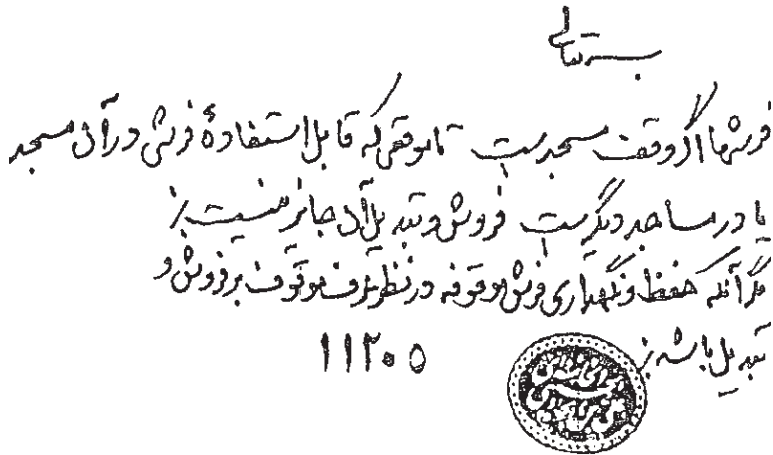 بسمه تعالی
فرشها اگر وقف مسجد است تا موقعی که قابل استفادهٔ فرشی در آن مسجد
یا در مساجد دیگر است فروش و تبدیل آن جایز نیست
مگر آنکه حفظ و نگهداری فرش موقوفه در نظر عرف موقوف بر فروش و
تبدیل باشد
۱۱۲۰۵